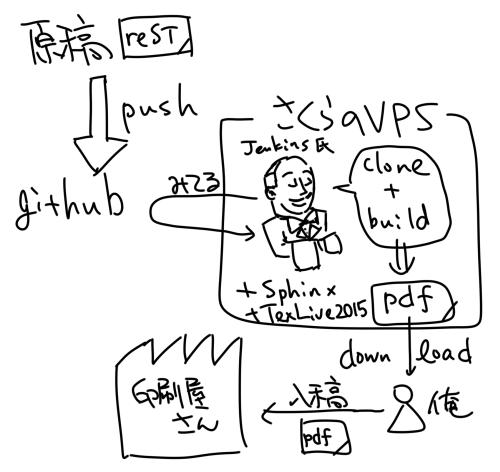 原稿 reST
push
github
みてる
さくらのVPS
Jenkins氏
clone
+
build
pdf
+Sphinx
+TexLive2015
down load
俺
入稿
pdf
印刷屋
さん